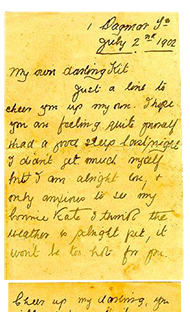 1 Dagmar Ts
July 2nd 1902
My own darling Kit
Just a line to
cheer you up my own. I hope
you are feeling quite yourself
& had a good sleep last night
I didn't get much myself
but I am alright love, &
only anxious to see my
bonnie Kate I think the
weather is alright yet, it
won't be too hot for you.
Cheer up my darling, you